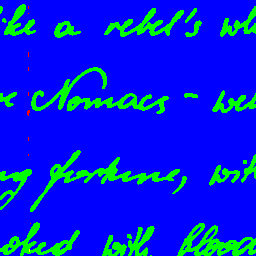 like a rebel's wh
ve Nomacs - wel
ng fortune, with
oked with blood